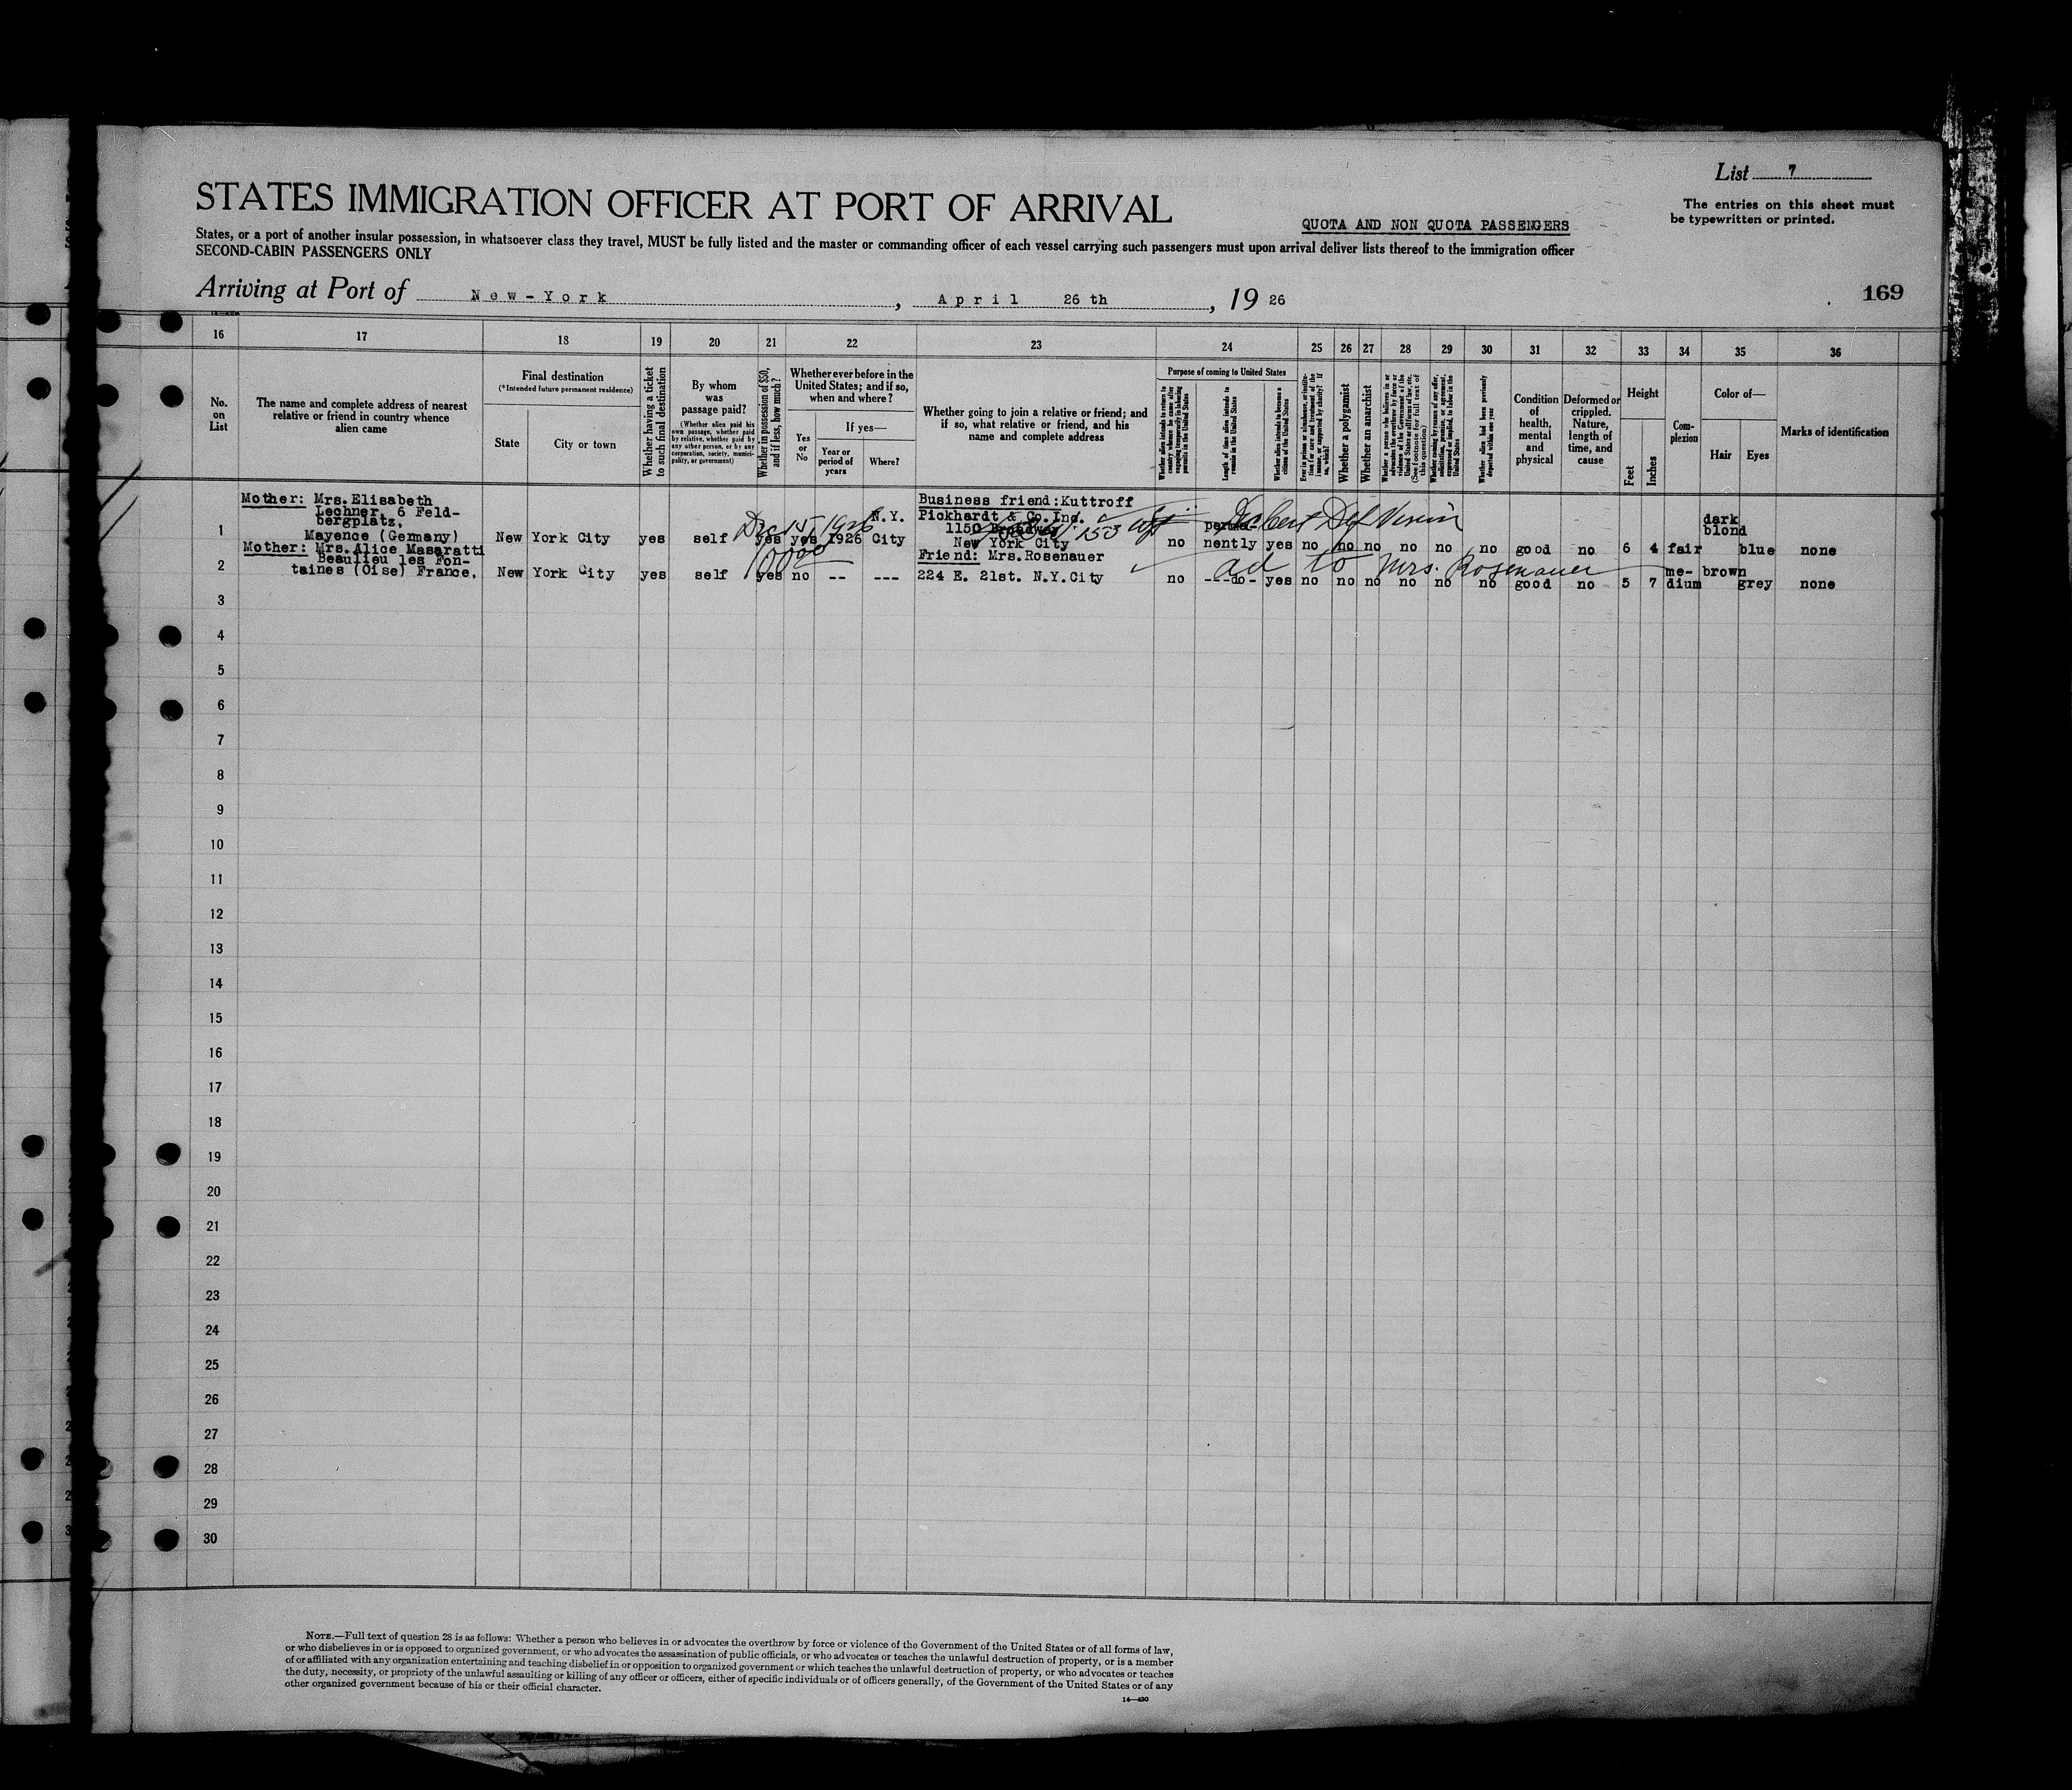 List 7
The entries on this sheet must
be typewritten or printed.
STATES IMMIGRATION OFFICER AT PORT OF ARRIVAL
QUOTA AND NON QUOTA PASSENGERS
States, or a port of another insular possession, in whatsoever class they travel, MUST be fully listed and the master or commanding officer of each vessel carrying such passengers must upon arrival deliver lists thereof to the immigration officer
SECOND-CABIN PASSENGERS ONLY
Arriving at Port of New-York, April 26 th, 19 26
169
16 17 18 19 20 21 22 23 24 25 26 27 28 29 30 31 32 33 34 35 36
No.
on
List
The name and complete address of nearest
relative or friend in country whence
alien came
Final destination
(*Intended future permanent residence)
State
City or town
Whether having a ticket
to such final destination
By whom
was
passage paid?
(Whether alien paid his
own passage, whether paid
by relative, whether paid by
any other person, or by any
corporation, society, munici-
pality, or government)
Whether in possession of $50,
and if less, how much?
Whether ever before in the
United States; and if so,
when and where?
Yes
or
No
If yes—
Year or
period of
years
Where?
Whether going to join a relative or friend; and
if so, what relative or friend, and his
name and complete address
Purpose of coming to United States
Whether alien intends to return to
country whence he came after
engaging temporarily in laboring
pursuits in the United States
Length of time alien intends to
remain in the United States
Whether alien intends to become a
citizen of the United States
Ever in prison or almshouse, or institu-
tion for care and treatment of the
insane, or supported by charity? If
so, which?
Whether a polygamist
Whether an anarchist
Whether a person who believes in or
advocates the overthrow by force or
violence of the Government of the
United States or all forms of law, etc.
(See footnote for full text of
this question)
Whether coming by reason of any offer,
solicitation, promise, or agreement,
expressed or implied, to labor in the
United States
Whether alien had been previously
deported within one year
Condition
of
health,
mental
and
physical
Deformed or
crippled.
Nature,
length of
time, and
cause
Height
Feet
Inches
Com-
plexion
Color of—
Hair
Eyes
Marks of identification
Mother: Mrs. Elisabeth
Lechner, 6 Feld-
bergplatz,
Mayence (Germany)
1 New York City yes self yes yes 1926 N.Y. City
Dec 15, 1926
Business friend: Kuttroff
Pickhardt & Co. Inc.
1150 Broadway
New York City
153
no perma-
nently yes no no no no no no good no 6 4 fair dark
blond blue none
Mother: Mrs. Alice Masaratti
Beaulieu les Fon-
taines (Oise) France.
2 New York City yes self yes no -- ---
Friend: Mrs. Rosenauer
224 E. 21st. N.Y. City
ad to Mrs. Rosenauer
no ---do- yes no no no no no no good no 5 7 me-
dium brown grey none
3
4
5
6
7
8
9
10
11
12
13
14
15
16
17
18
19
20
21
22
23
24
25
26
27
28
29
30
NOTE.—Full text of question 28 is as follows: Whether a person who believes in or advocates the overthrow by force or violence of the Government of the United States or of all forms of law,
or who disbelieves in or is opposed to organized government, or who advocates the assassination of public officials, or who advocates or teaches the unlawful destruction of property, or is a member
of or affiliated with any organization entertaining and teaching disbelief in or opposition to organized government or which teaches the unlawful destruction of property, or who advocates or teaches
the duty, necessity, or propriety of the unlawful assaulting or killing of any officer or officers, either of specific individuals or of officers generally, of the Government of the United States or of any
other organized government because of his or their official character.
14—430